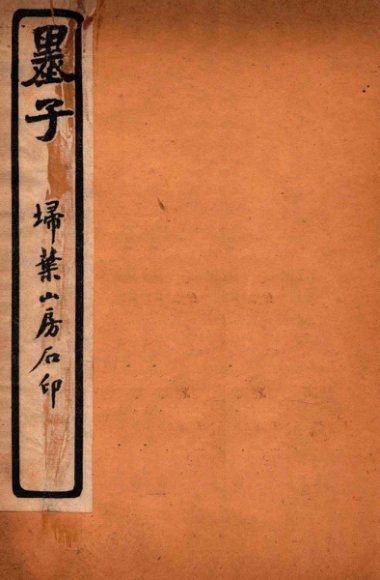 墨子
埽葉山房石印